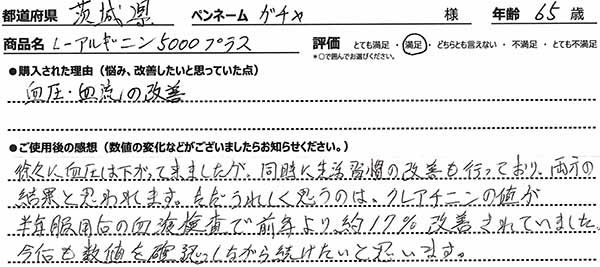 都道府県 茨城県 ペンネーム ガチャ 様 年齢 65 歳
商品名 L-アルギニン5000プラス 評価 とても満足 ・ 満足 ・ どちらとも言えない ・ 不満足 ・ とても不満足
*○で囲んでお選びください。
●購入された理由（悩み、改善したいと思っていた点）
血圧・血流の改善
●ご使用後の感想（数値の変化などがございましたらお知らせください。）
徐々に血圧は下がって来ましたが、同時に生活習慣の改善も行っており、両方の
結果と思われます。ただうれしく思うのは、クレアチニンの値が
半年服用后の血液検査で前年より、約17%改善されていました。
今后も数値を確認しながら続けたいと思います。